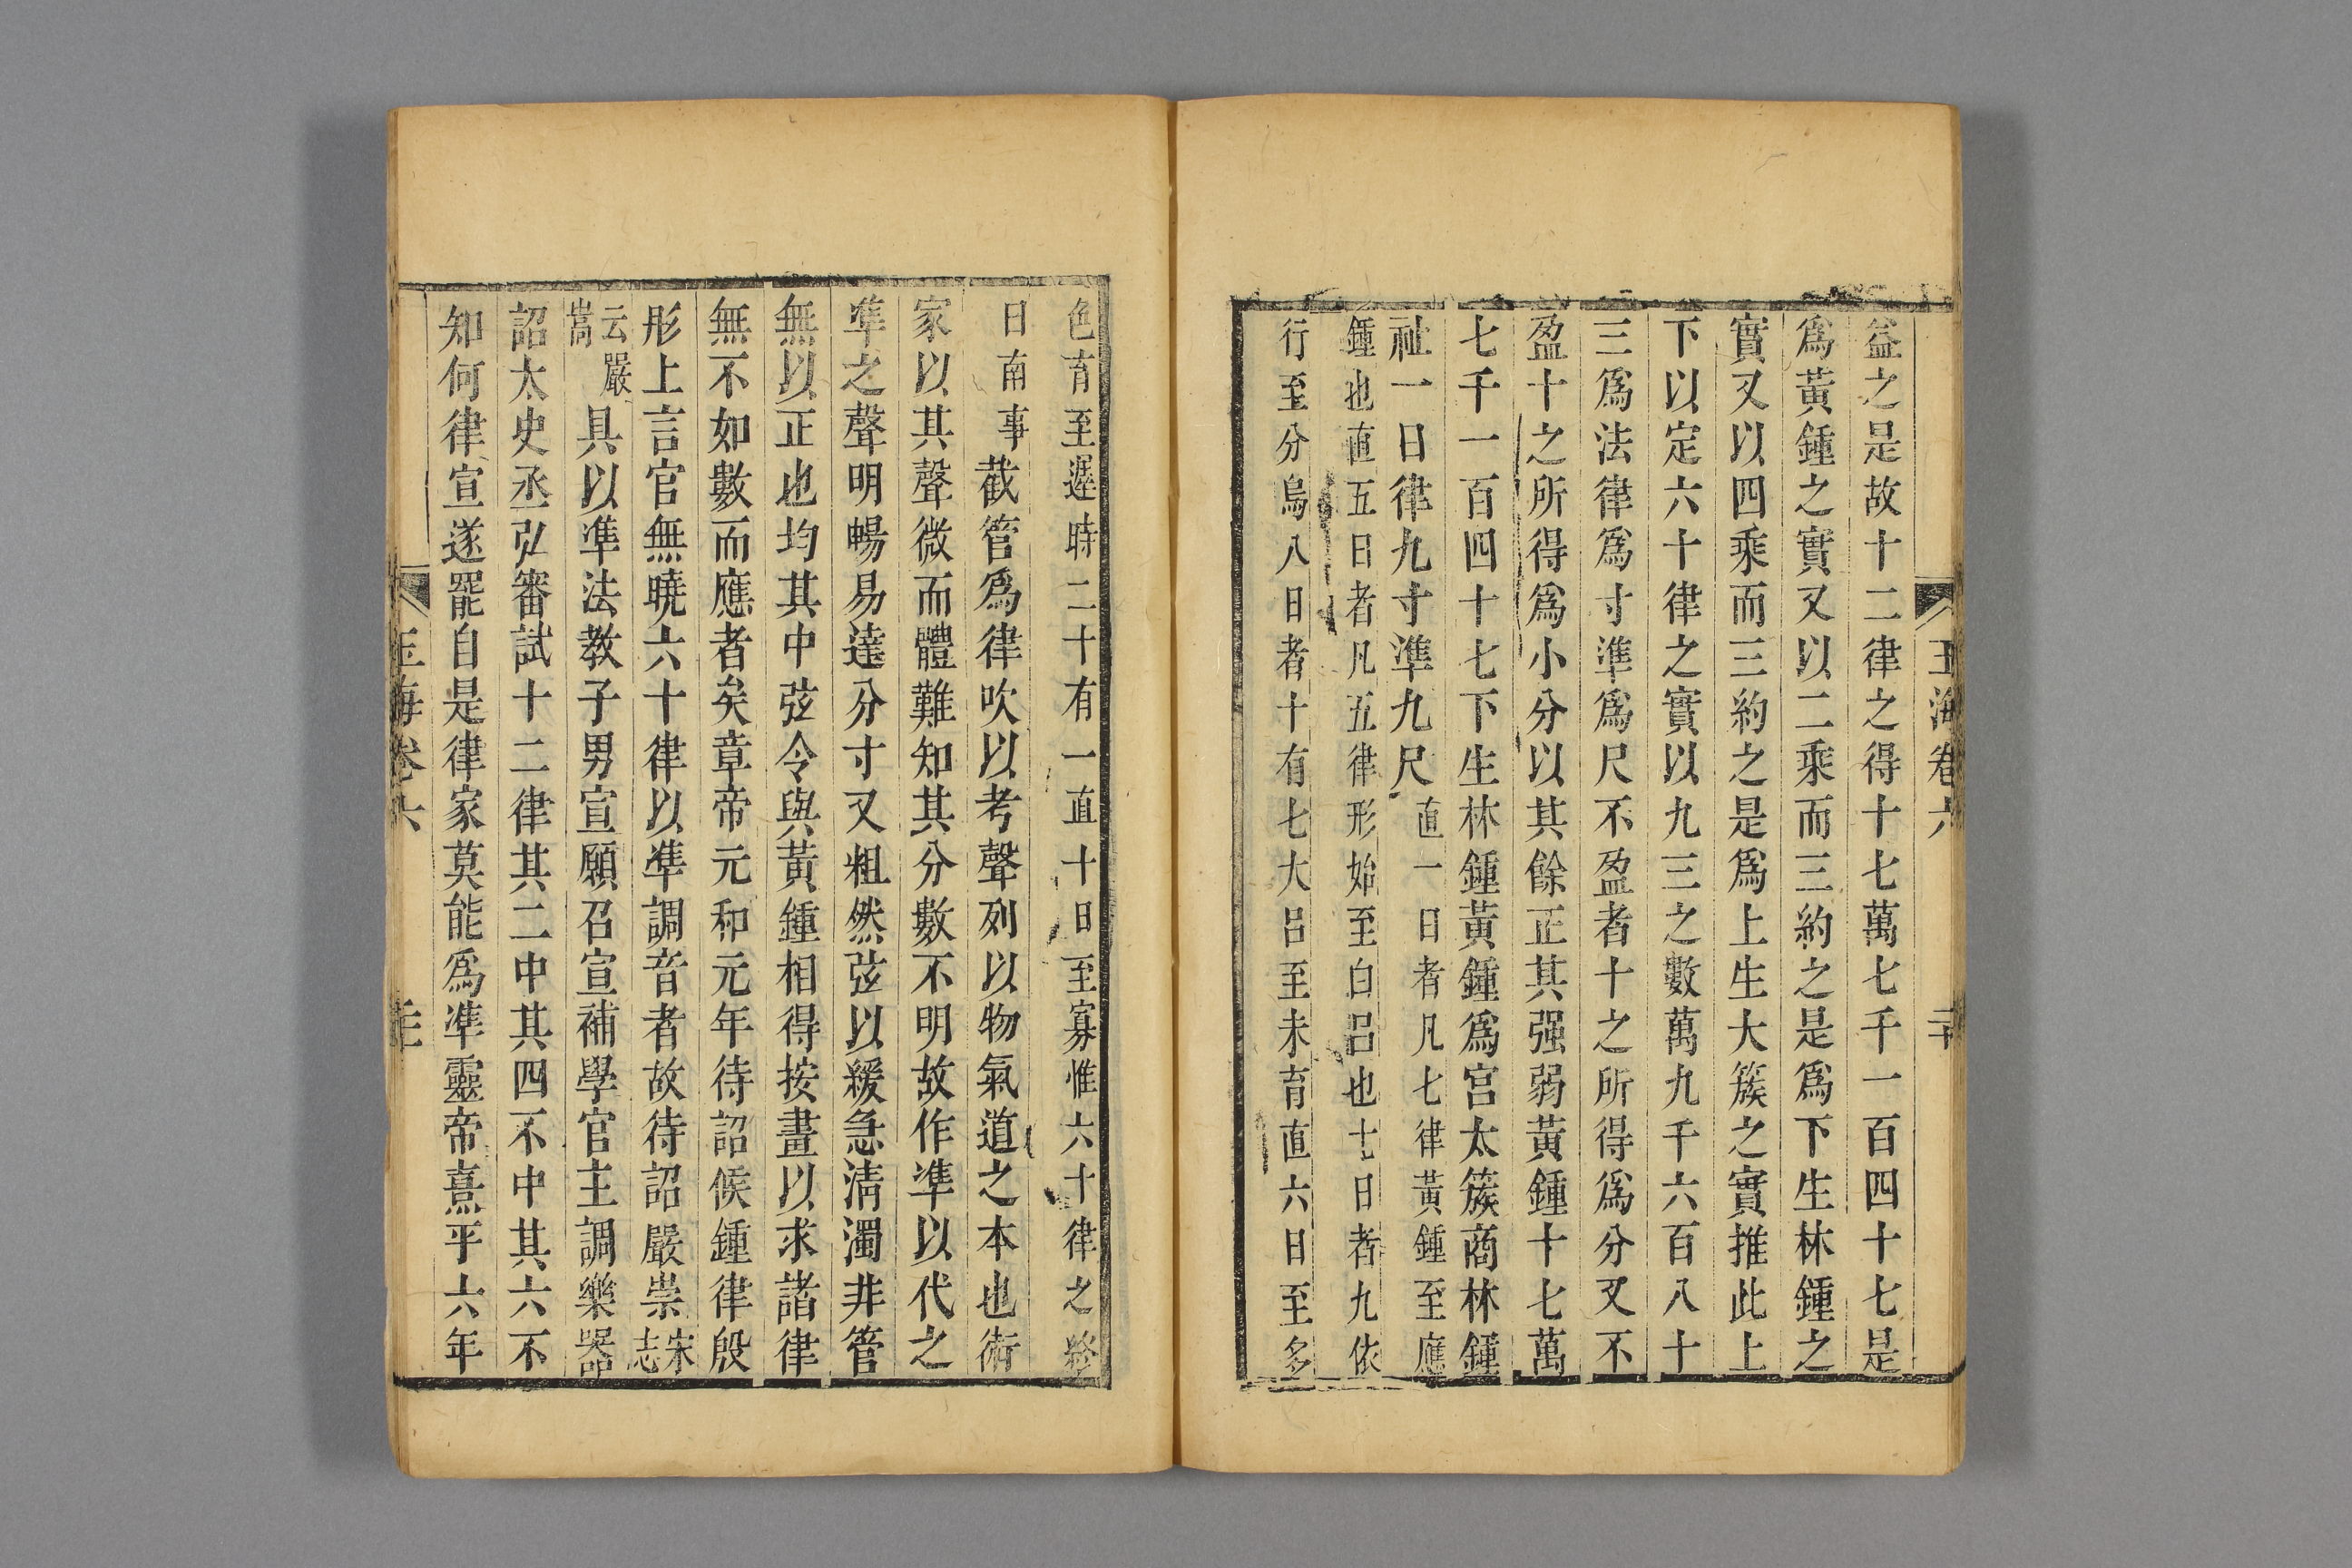 玉海卷六 二十
益之是故十二律之得十七萬七千一百四十七是
爲黃鍾之實又以二乘而三約之是爲下生林鍾之
實又以四乘而三約之是爲上生大簇之實推此上
下以定六十律之實以九三之數萬九千六百八十
三爲法律爲寸準爲尺不盈者十之所得爲分又不
盈十之所得爲小分以其餘正其强弱黃鍾十七萬
七千一百四十七下生林鍾黃鍾爲宮太簇商林鍾
祉一日律九寸準九尺直一日者凡七律黃鍾至應
鍾也直五日者凡五律形始至白呂也七日者九依
行至分烏八日者十有七大呂至未育直六日至多
色育至遲時二十有一直十日至寡惟六十律之終
日南事截管爲律吹以考聲列以物氣道之本也術
家以其聲微而體難知其分數不明故作準以代之
準之聲明暢易達分寸又粗然弦以緩急淸濁非管
無以正也均其中弦令與黃鍾相得按畫以求諸律
無不如數而應者矣章帝元和元年待詔候鍾律殷
肜上言官無曉六十律以準調音者故待詔嚴崇宋志
云嚴嵩具以準法教子男宣願召宣補學官主調樂器
詔太史丞弘審試十二律其二中其四不中其六不
知何律宣遂罷自是律家莫能爲準靈帝熹平六年
玉海卷六